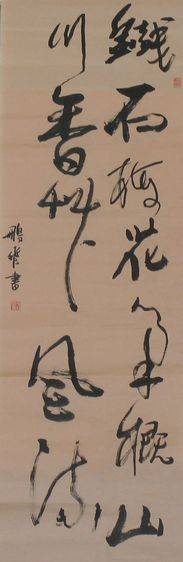 鐵石梅花氣概山
川香艸風流
鵬書